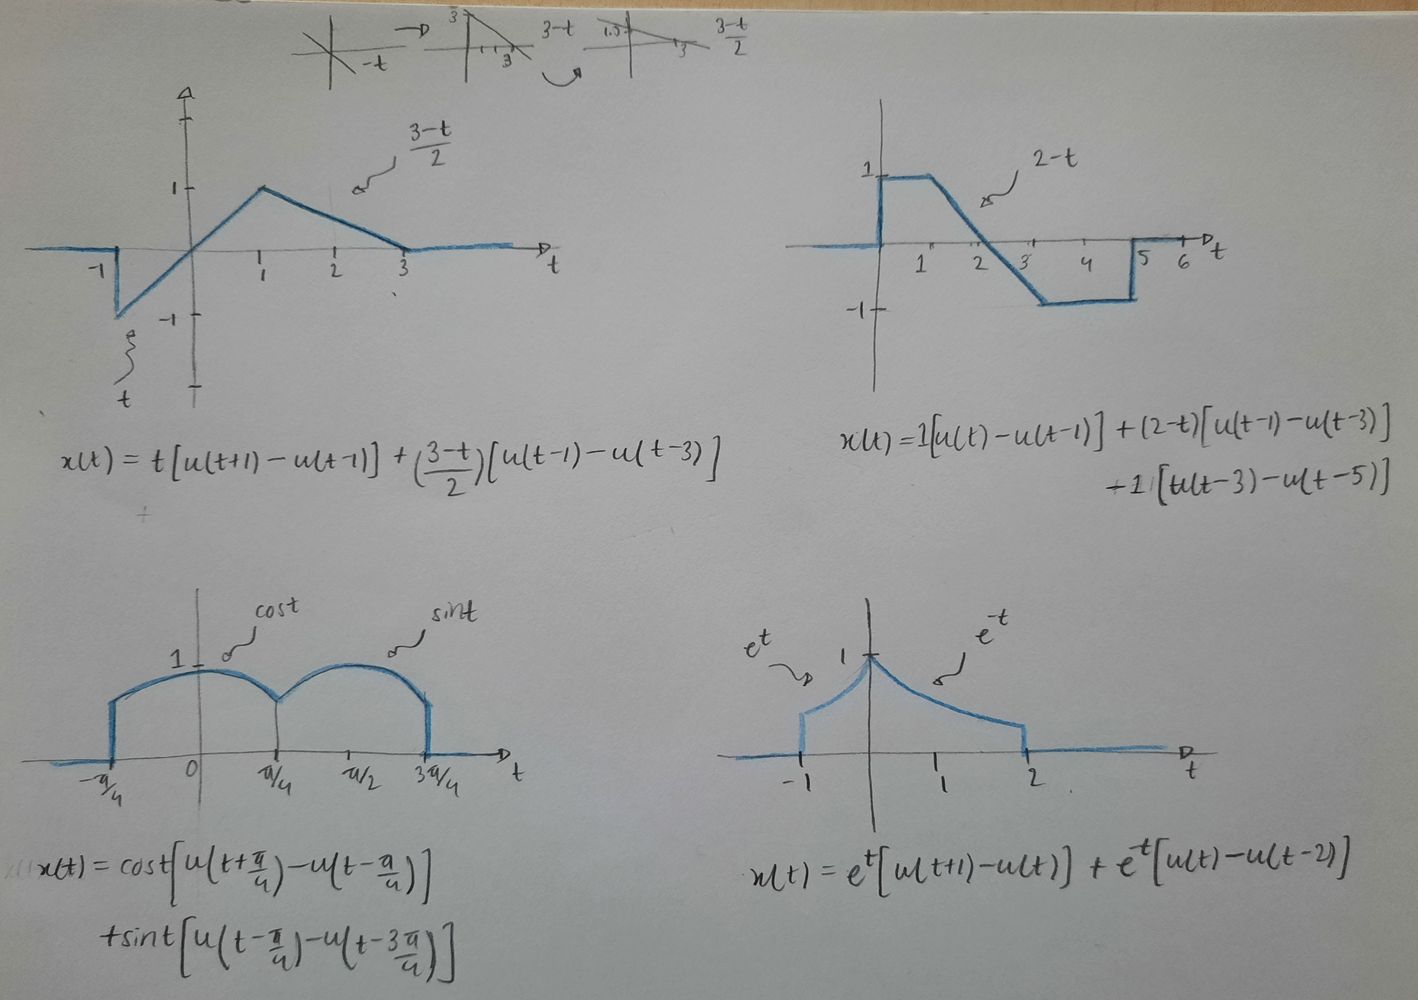 3 3 -t → 3-t 1.5 3 3-t/2
3-t/2
1
-1 1 2 3 t
-1
t
x(t) = t[u(t+1) - u(t-1)] + (3-t/2)[u(t-1) - u(t-3)]
2-t
1
1 2 3 4 5 6 t
-1
x(t)=1[u(t)-u(t-1)] + (2-t)[u(t-1)-u(t-3)]
-1[u(t-3)-u(t-5)]
cost sint
1
-π/4 0 π/4 π/2 3π/4 t
x(t) = cost[u(t+π/4)-u(t-π/4)]
+sint[u(t-π/4)-u(t-3π/4)]
e^t e^-t
1
-1 1 2 t
x(t) = e^t[u(t+1)-u(t)] + e^-t[u(t)-u(t-2)]